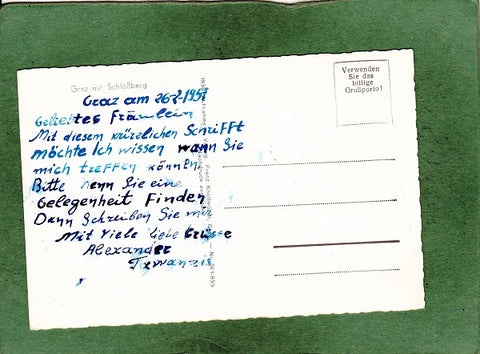 Graz mit Schloßberg
Graz am 26-2-1957
Geliebtes Fräulein
Mit diesem kürzlichen Schrifft
möchte Ich wissen wann Sie
mich treffen können.
Bitte wenn Sie eine
Gelegenheit Finden
Dann Schreiben Sie mir
Mit Viele Liebe Grüsse
Alexander
Verwenden
Sie das
billige
Grußporto!